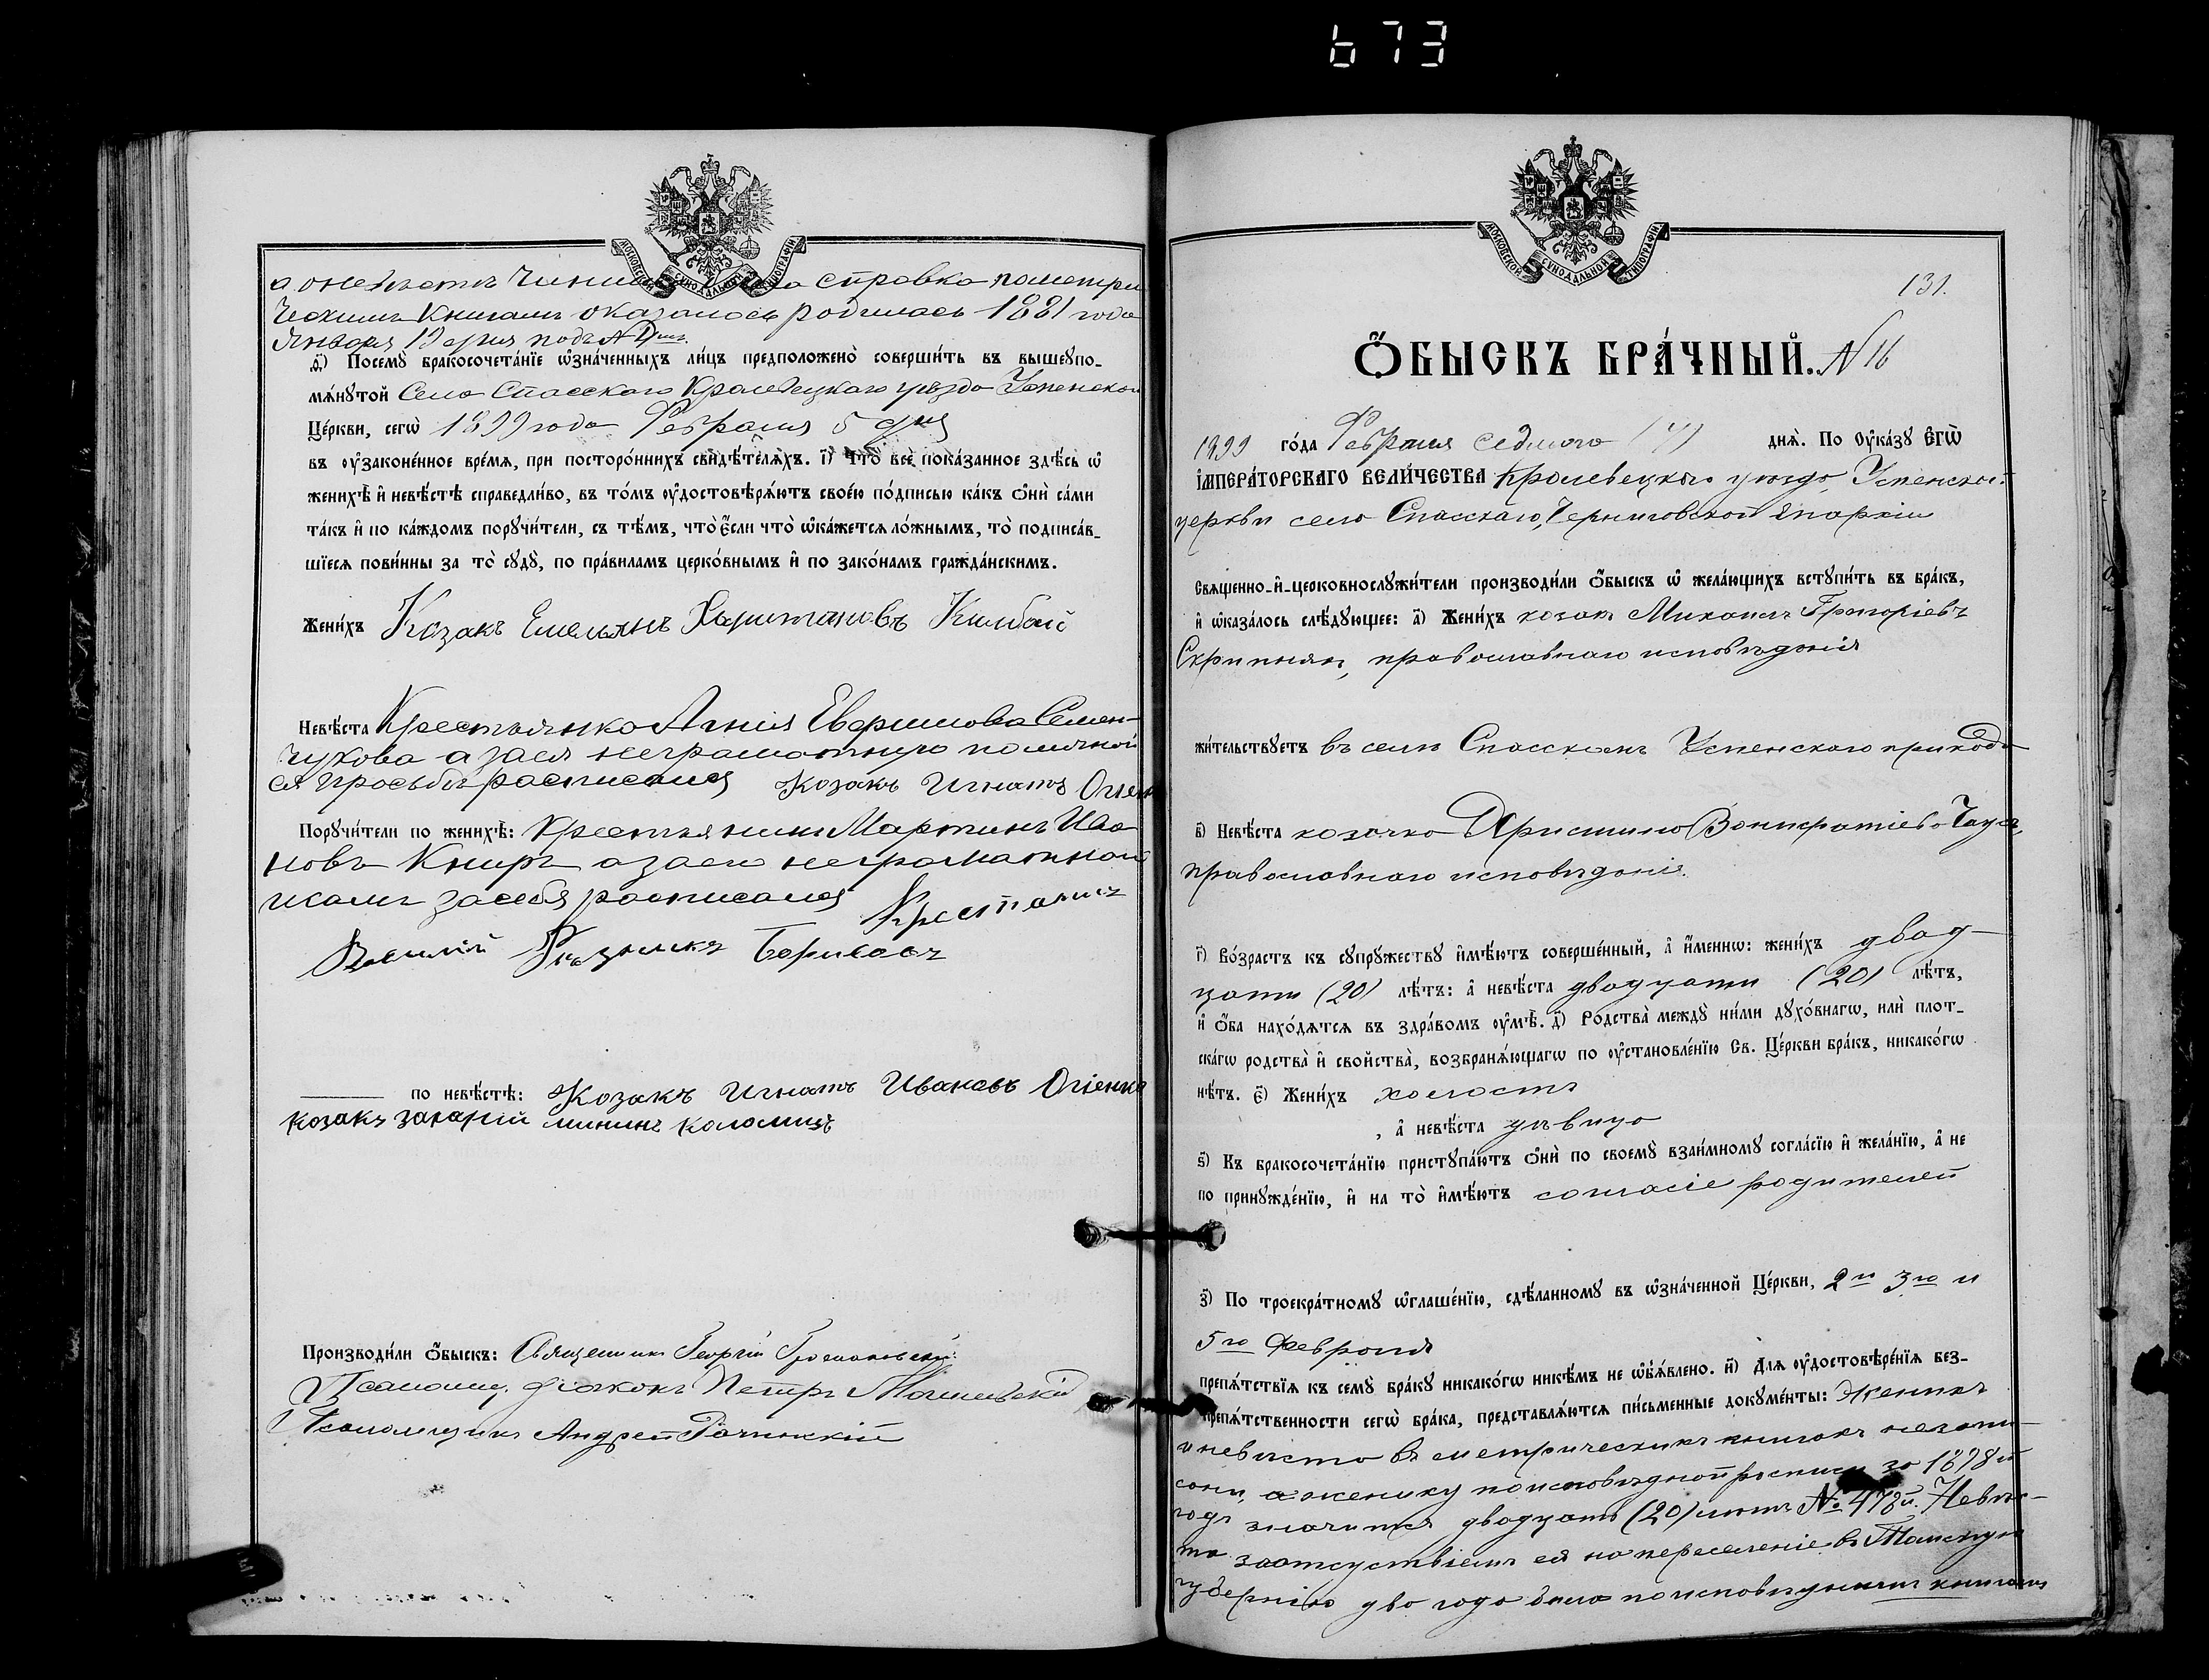 673
МОСКОВСКОЙ СУНОДАЛЬНОЙ ТИПОГРАФІИ
а о невѣстѣ справка по метри
ческимъ книгамъ оказалось родилась 1881 года
Января
д҃) Посемꙋ бракосочета́нїе ѡ҆зна́ченныхъ ли́цъ предположено̀ соверши́ть въ вышеꙋпо-
мѧ́нꙋтой Села Спасскаго Кролевецкаго уѣзда Успенской
Це́ркви, сегѡ̀ 1899 года Февраля 5 дня
въ ᲂу҆законе́нное вре́мѧ, при посторо́ннихъ свидѣ́телѧхъ. і҃) Что̀ всѐ пока́занное здѣ́сь ѡ҆
женихѣ̀ и҆ невѣ́стѣ справедли́во, въ то́мъ ᲂу҆достовѣрѧ́ютъ свое́ю по́дписью ка́къ ѻ҆нѝ са́ми
та́къ и҆ по ка́ждомъ порꙋчи́тели, съ тѣ́мъ, что̀ є҆́сли что̀ ѡ҆ка́жетсѧ ло́жнымъ, то̀ подписа́в-
шїесѧ пови́нны за то̀ сꙋдꙋ̀, по пра́виламъ церко́внымъ и҆ по зако́намъ гражда́нскимъ.
Жени́хъ Козакъ Емельянъ Харитоновъ Кимбай
Невѣ́ста Крестьянка Агнія Евфимова Семен-
чукова а за ея неграмотную по личной
ея просьбѣ росписался Козакъ Игнатъ Огіенко
Порꙋчи́тели по женихѣ̀: Крестьянинъ Мартинъ Ива
новъ Книръ а за его неграмотнаго
и самъ за себя росписался Крестьянинъ
Василій Борисовъ
по невѣ́стѣ: Козакъ Игнатъ Ивановъ Огіенко
Козакъ Захарій Мининъ Коломиецъ
Производи́ли ѻ҆́быскъ: Священникъ Георгій
Псаломщ. діаконъ Петръ
Псаломщикъ Андрей
МОСКОВСКОЙ СУНОДАЛЬНОЙ ТИПОГРАФІИ
131.
Ѻ҆́БЫСКЪ БРА́ЧНЫЙ. № 16
1899 го́да Февраля седмого (7) днѧ̀. По ᲂу҆ка́зꙋ є҆гѡ̀
і҆мпера́торскаго вели́чества Кролевецкаго уѣзда, Успенской
церкви села Спасскаго, Черниговской Епархіи
Свѧще́нно-и҆-церковнослꙋжи́тели производи́ли ѻ҆́быскъ ѡ҆ жела́ющихъ встꙋпи́ть въ бра́къ,
и҆ ѡ҆каза́лось слѣ́дꙋющее: а҃) Жени́хъ козакъ Михаилъ Григоріевъ
Скрипнякъ, православнаго исповѣданія
жи́тельствꙋетъ въ селѣ Спасскомъ Успенскаго прихода
в҃) Невѣ́ста козачка Христина Вонифатіева Чаусъ,
православнаго исповѣданія.
г҃) Во́зрастъ къ сꙋпрꙋ́жествꙋ и҆мѣ́ютъ соверше́нный, а҆ и҆́меннѡ: жени́хъ двад-
цати (20) лѣ́тъ: а҆ невѣ́ста двадцати (20) лѣ́тъ,
и҆ ѻ҆́ба нахо́дѧтсѧ въ здра́вомъ ᲂу҆мѣ̀. д҃) Ро́дства междꙋ̀ ни́ми дꙋхо́внагѡ, илѝ плот-
ска́гѡ родства̀ и҆ свойства̀, возбранѧ́ющагѡ по ᲂу҆становле́нїю Св. Це́ркви бра́къ, никако́гѡ
нѣ́тъ. є҃) Жени́хъ холостъ
, а҆ невѣ́ста дѣвица
ѕ҃) Къ бракосочета́нїю пристꙋпа́ютъ ѻ҆нѝ по своемꙋ̀ взаи́мномꙋ согла́сїю и҆ жела́нїю, а҆ не
по принꙋжде́нїю, и҆ на то̀ и҆мѣ́ютъ согласіе родителей
з҃) По троекра́тномꙋ ѡ҆глаше́нїю, сдѣ́ланномꙋ въ ѡ҆зна́ченной Це́ркви, 2го 3го и
5го Февраля
препѧ́тствїѧ къ семꙋ̀ бра́кꙋ никако́гѡ никѣ́мъ не ѡ҆б̾ѧ́влено. и҃) Длѧ ᲂу҆достовѣре́нїѧ без-
препѧ́тственности сегѡ̀ бра́ка, представлѧ́ютсѧ пи́сьменные докꙋме́нты: Женихъ
и невѣста въ метрическихъ книгахъ незапи-
саны, а жениху по исповѣдной росписи за 1898й
годъ значится двадцать (20) лѣтъ № 478й. Невѣс-
та за отсутствіемъ ея на переселеніе въ Томскую
губернію два года была по исповѣднымъ книгамъ